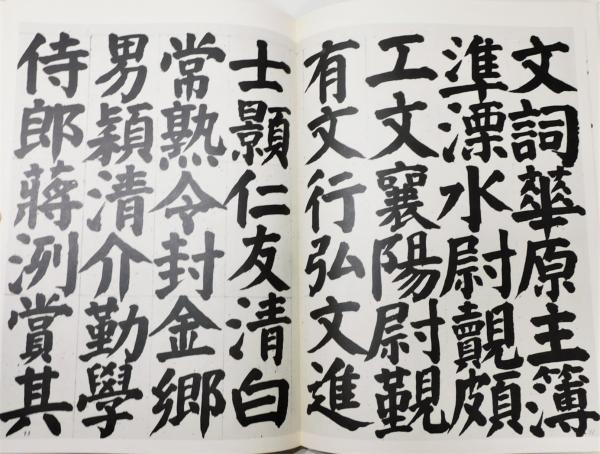 文詞華原主簿
準漂水尉覿頗
工文襄陽尉覲
有文行弘文進
士顥仁友清白
常熟令封金郷
男穎清介勤學
侍郎蔣洌賞其